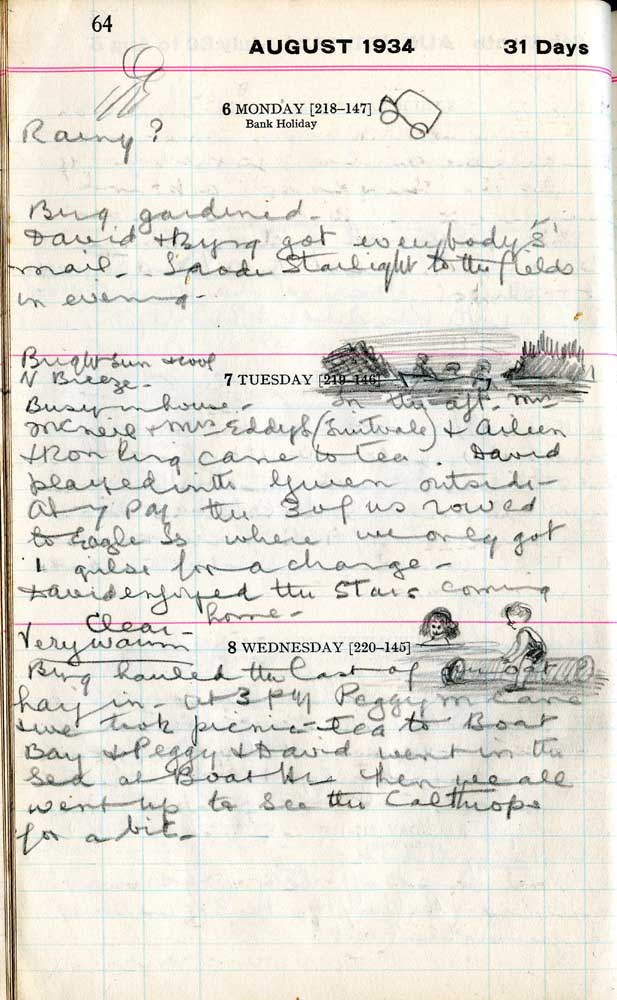 64
AUGUST 1934 31 Days
6 MONDAY [218–147]
Bank Holiday
Rainy?
Byng gardened.
David + Byng got everybody's
mail. I rode Starlight to the fields
in evening.
Bright sun + cool
N Breeze.
7 TUESDAY [219–146]
Busy in house. In the aft. Mrs
McNeil + Mrs Eddy + Aileen
+ Ron King came to tea. David
played with Gwen outside.
At 7 PM the 3 of us rowed
to Eagle Is where we only got
1 for a change.
David enjoyed the stars coming
home.
Clear
Very warm
8 WEDNESDAY [220–145]
Byng hauled the last of our oat
hay in. At 3 PM Peggy M came
+ we took picnic tea to Boat
Bay + Peggy + David went in the
sea at Boat Hr then we all
went up to see the Calthrops
for a bit.